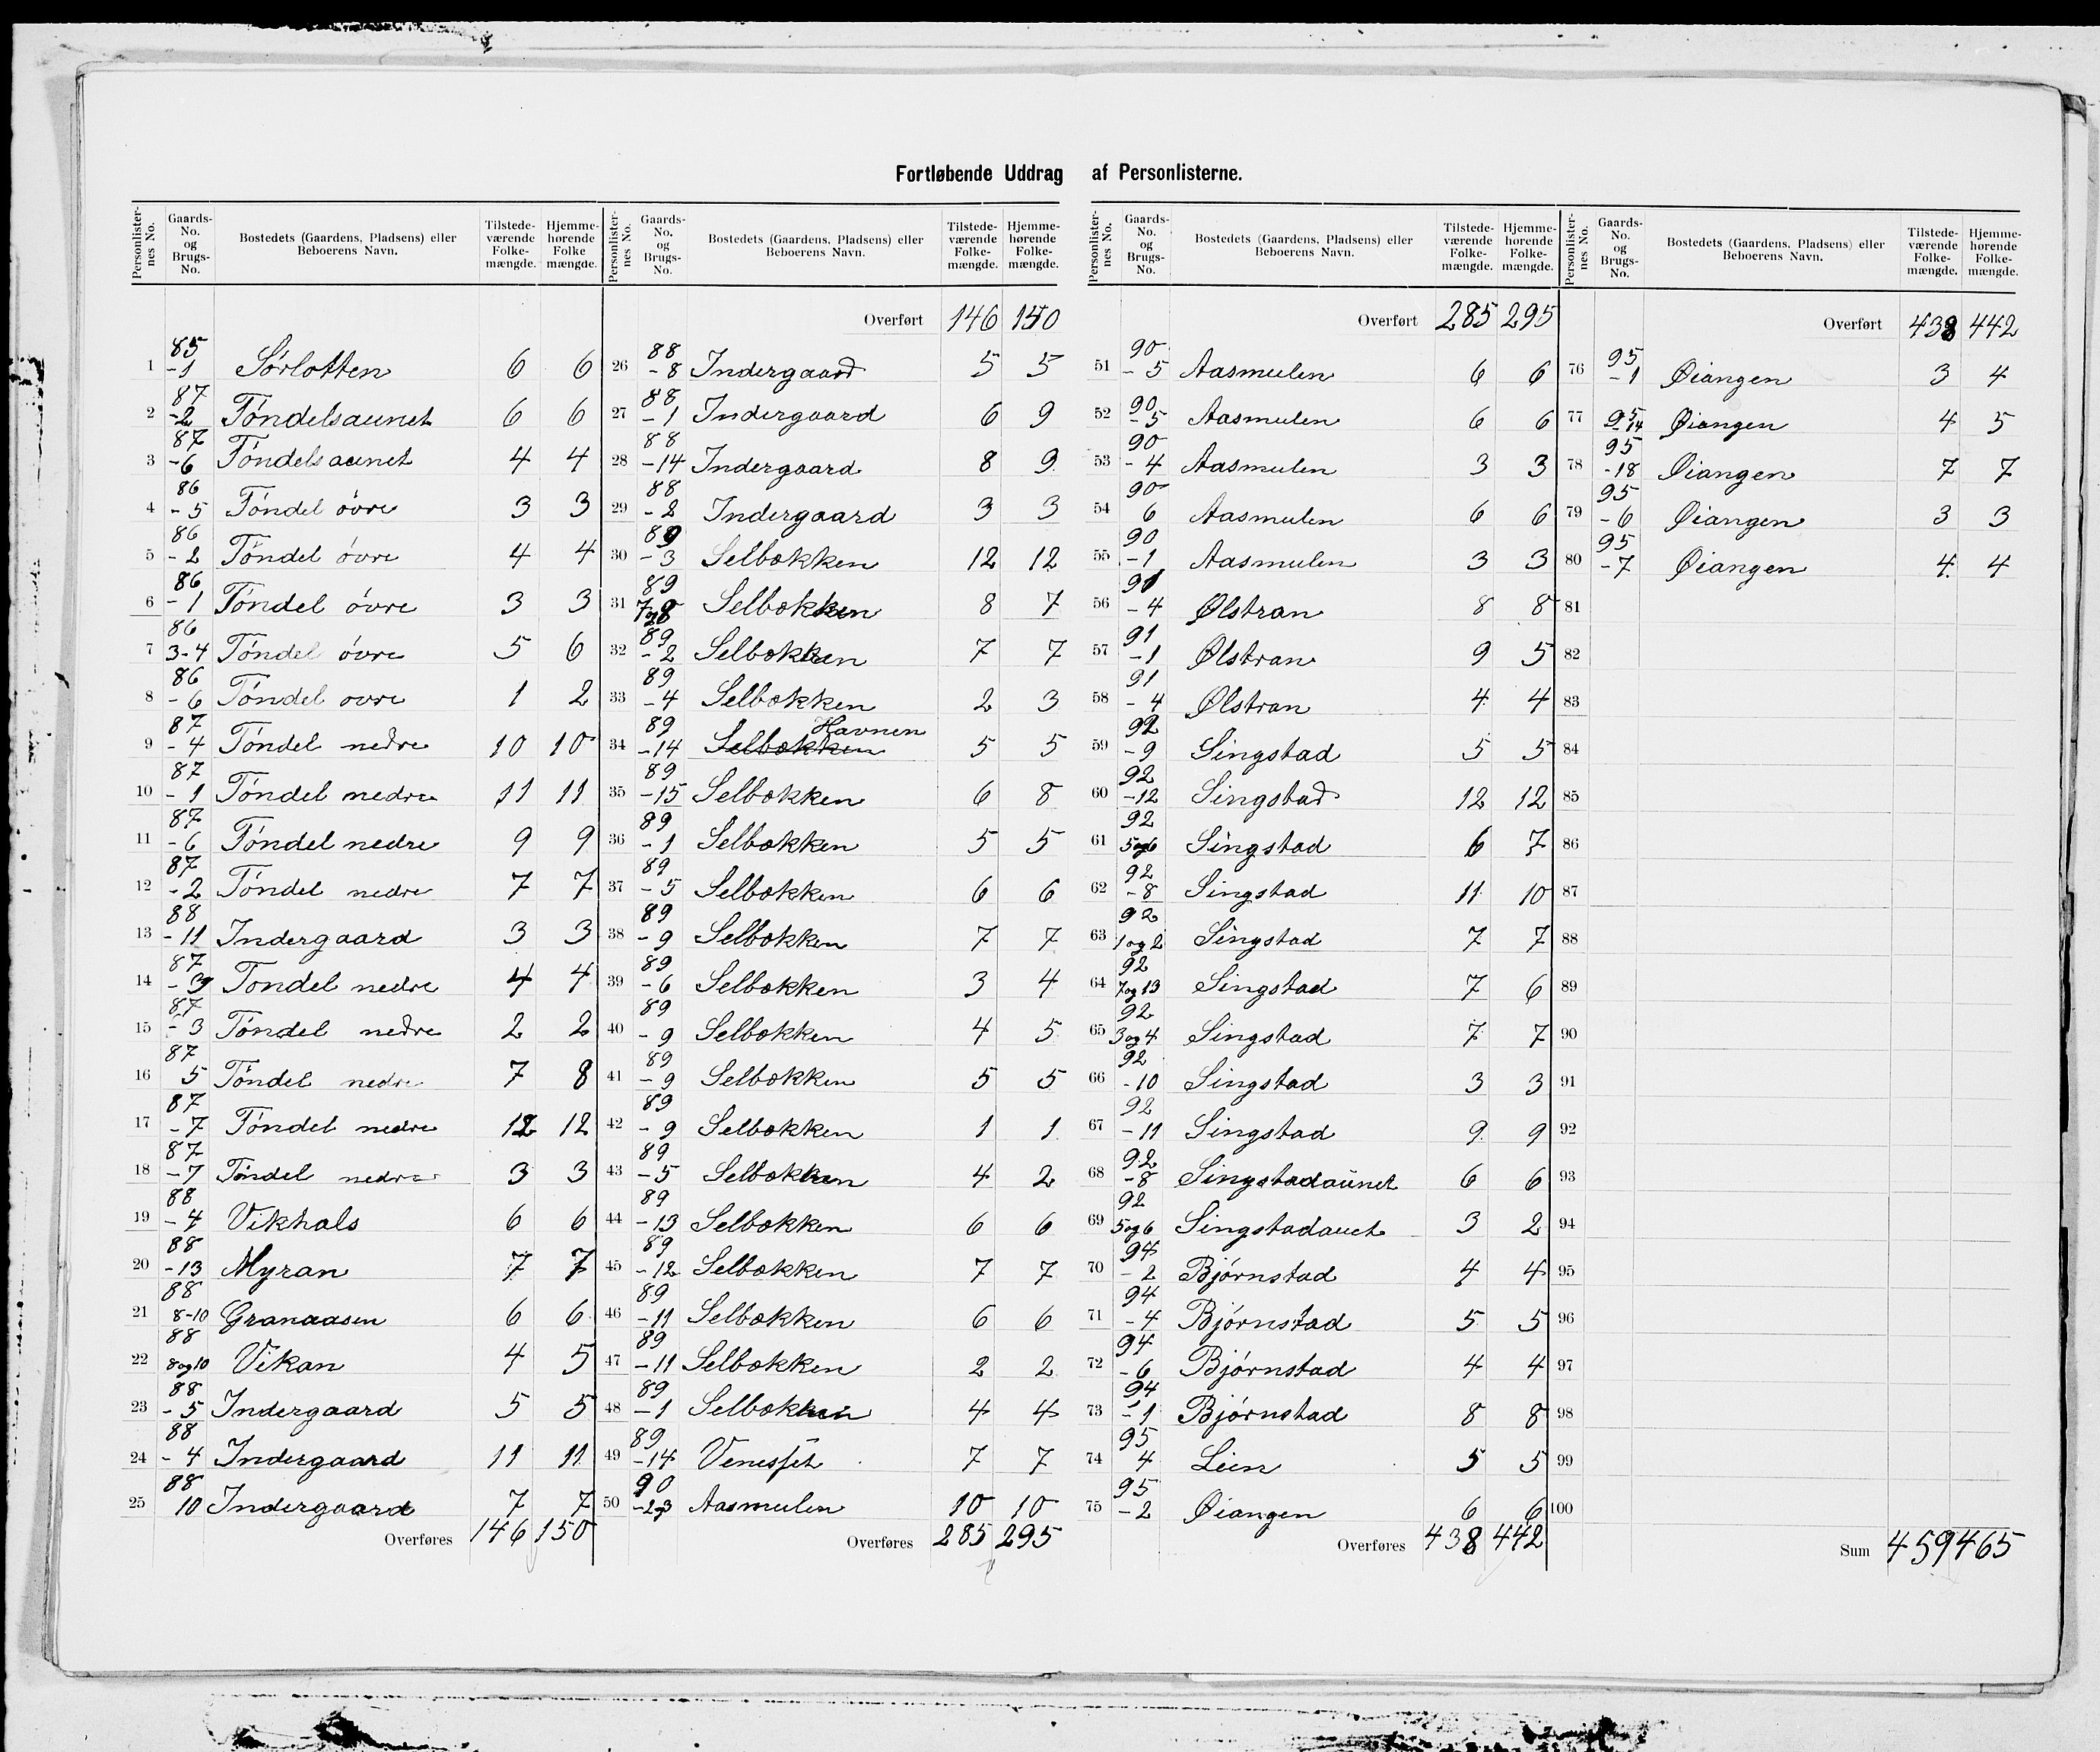 Fortløbende Uddrag af Personlisterne.
Personlisternes No. Gaards-No. og Brugs-No. Bostedets (Gaardens, Pladsens) eller Beboerens Navn. Tilstedeværende Folkemængde. Hjemmehørende Folke mængde.
1 85 -1 Sørlotten 6 6
2 87 -2 Tøndelsaunet 6 6
3 87 -6 Tøndelsaunet 4 4
4 86 -5 Tøndel øvre 3 3
5 86 -2 Tøndel øvre 4 4
6 86 -1 Tøndel øvre 3 3
7 86 3-4 Tøndel øvre 5 6
8 86 -6 Tøndel ovre 1 2
9 87 -4 Tøndel nedre 10 10
10 87 -1 Tøndel nedre 11 11
11 87 -6 Tøndel nedre 9 9
12 87 -2 Tøndel nedre 7 7
13 88 -11 Indergaard 3 3
14 87 Tondel nedre 4 4
15 87 -3 Tøndel nedre 2 2
16 87 5 Tøndel nedre 7 8
17 87 -7 Tøndel nedre 12 12
18 87 -7 Tøndel nedre 3 3
19 88 -4 Vikhals 6 6
20 88 -13 Myran 7 7
21 88 8-10 Granaasen 6 6
22 88 8og10 Vikan 4 5
23 88 -5 Indergaard 5 5
24 88 -4 Indergaard 11 11
25 88 10 Indergaard 7 7
Overføres 146 150
Personlisternes No. Gaards-No. og Brugs-No. Bostedets (Gaardens, Pladsens) eller Beboerens Navn. Tilstedeværende Folkemængde. Hjemmehørende Folkemængde.
Overført 146 150
26 88 -8 Indergaard 5 5
27 88 -1 Indergaard 6 9
28 88 -14 Indergaard 8 9
29 88 -2 Indergaard 3 3
30 89 -3 Selbækken 12 12
31 89 7og8 Selbækken 8 7
32 89 -2 Selbækken 7 7
33 89 -4 Selbækken 2 3
34 89 -14 Selbækken Havnen 5 5
35 89 -15 Selbækken 6 8
36 89 -1 Selbækken 5 5
37 89 -5 Selbækken 6 6
38 89 -9 Selbækken 7 7
39 89 -6 Selbækken 3 4
40 89 -9 Selbækken 4 5
41 89 -9 Selbækken 5 5
42 89 -9 Selbækken 1 1
43 89 -5 Selbækken 4 2
44 89 -13 Selbækken 6 6
45 89 -12 Selbækken 7 7
46 89 -11 Selbækken 6 6
47 89 -11 Selbækken 2 2
48 89 -1 Selbækken 4 4
49 89 -14 Venesset 7 7
50 90 Aasmulen 10 10
Overføres 285 295
Personlisternes No. Gaards-No. og Brugs-No. Bostedets (Gaardens, Pladsens) eller Beboerens Navn. Tilstedeværende Folkemængde. Hjemmehørende Folkemængde.
Overført 285 295
51 90 -5 Aasmulen 6 6
52 90 -5 Aasmulen 6 6
53 90 -4 Aasmulen 3 3
54 90 6 Aasmulen 6 6
55 90 -1 Aasmulen 3 3
56 91 -4 Ølstran 8 8
57 91 -1 Ølstran 9 5
58 91 -4 Ølstran 4 4
59 92 -9 Singstad 5 5
60 92 -12 Singstad 12 12
61 92 5og6 Singstad 6 7
62 92 -8 Singstad 11 10
63 92 1og2 Singstad 7 7
64 92 7og13 Singstad 7 6
65 92 3og4 Singstad 7 7
66 92 -10 Singstad 3 3
67 92 -11 Singstad 9 9
68 92 -8 Singstadaunet 6 6
69 92 5og6 Singstadauet 3 2
70 94 -2 Bjørnstad 4 4
71 94 -4 Bjørnstad 5 5
72 94 -6 Bjørnstad 4 4
73 94 -1 Bjørnstad 8 8
74 95 4 Leen 5 5
75 95 -2 Øiangen 6 6
Overføres 438 442
Personlisternes No. Gaards-No. og Brugs-No. Bostedets (Gaardens, Pladsens) eller Beboerens Navn. Tilstedeværende Folkemængde. Hjemmehørende Folkemængde.
Overført 438 442
76 95 -1 Øiangen 3 4
77 95 -14 Øiangen 4 5
78 95 -18 Øiangen 7 7
79 95 -6 Øiangen 3 3
80 95 -7 Øiangen 4 4
81
82
83
84
85
86
87
88
89
90
91
92
93
94
95
96
97
98
99
100
Sum 459 465